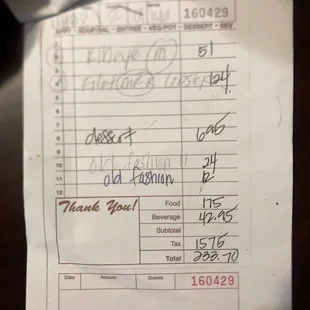 160429
APPT - SOUP/SAL - ENTREE - VEG/POT - DESSERT - BEV
Ribeye (m) 51
124
dessert 6.95
old fashion 11 24
11 old fashion 12
Thank You!
Food 175
Beverage 42.95
Subtotal
Tax 15 75
Total 233.70
Date Amount Guests 160429